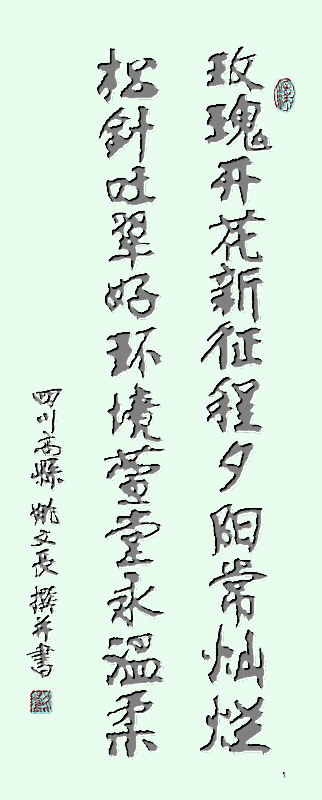 玫瑰开花新征程夕阳常灿烂
松針吐翠好环境萱堂永温柔
四川高縣姚文長撰并書